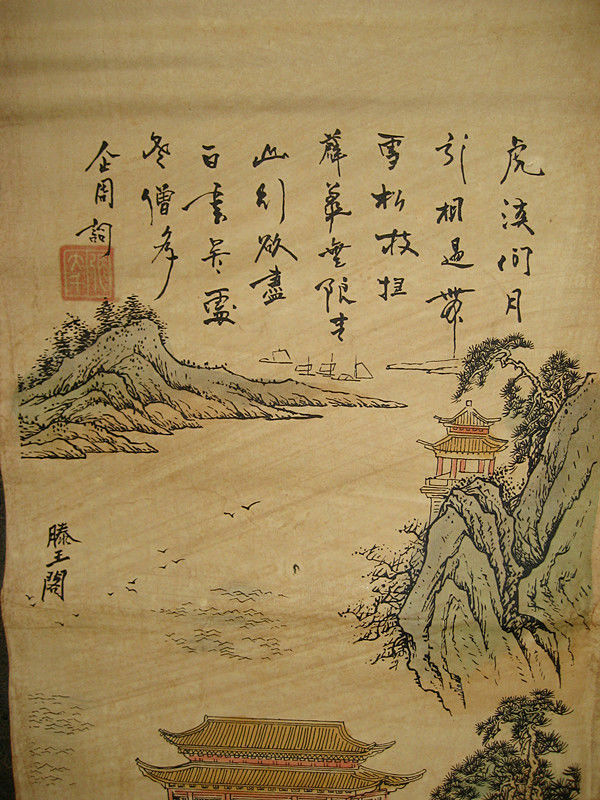 虎溪閒月
引相過帶
雪松枝挂
薜蘿無限青
山行欲盡
白雲深處
老僧多
企周詞
滕王閣